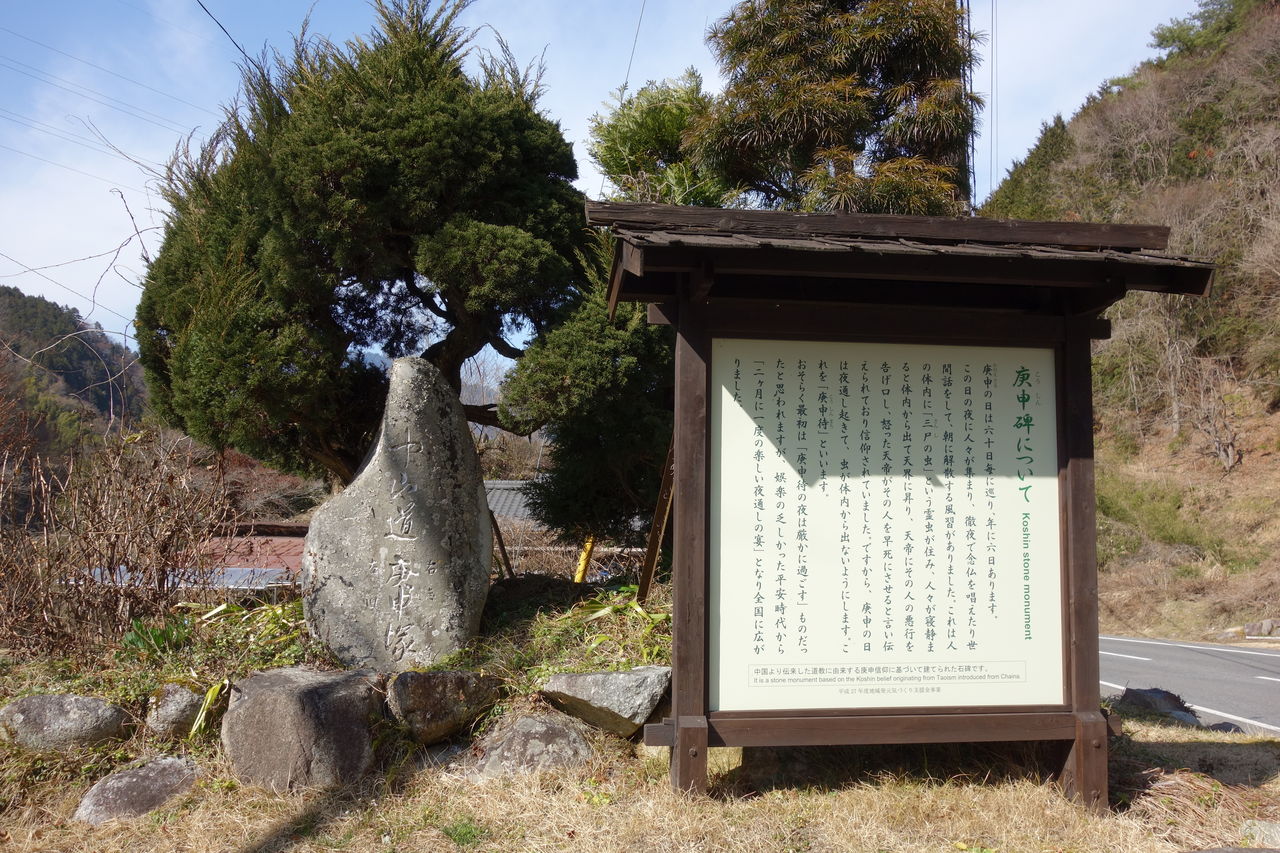 庚申碑について Koshin stone monument
こうしん
庚申の日は六十日毎に巡り、年に六日あります。
この日の夜に人々が集まり、徹夜で念仏を唱えたり世
間話をして、朝に解散する風習がありました。これは人
の体内に「三尸の虫」という霊虫が住み、人々が寝静ま
ると体内から出て天界に昇り、天帝にその人の悪行を
告げ口し、怒った天帝がその人を早死にさせると言い伝
えられており信仰されていました。ですから、庚申の日
は夜通し起きて、虫が体内から出ないようにします。こ
れを「庚申待」といいます。
おそらく最初は「庚申待の夜は厳かに過ごす」ものだっ
たと思われますが、娯楽の乏しかった平安時代から
「二ヶ月に一度の楽しい夜通しの宴」となり全国に広が
りました。
中国より伝来した道教に由来する庚申信仰に基づいて建てられた石碑です。
It is a stone monument based on the Koshin belief originating from Taoism introduced from Chaina.
平成27年度地域発元気づくり支援金事業
道
申塚